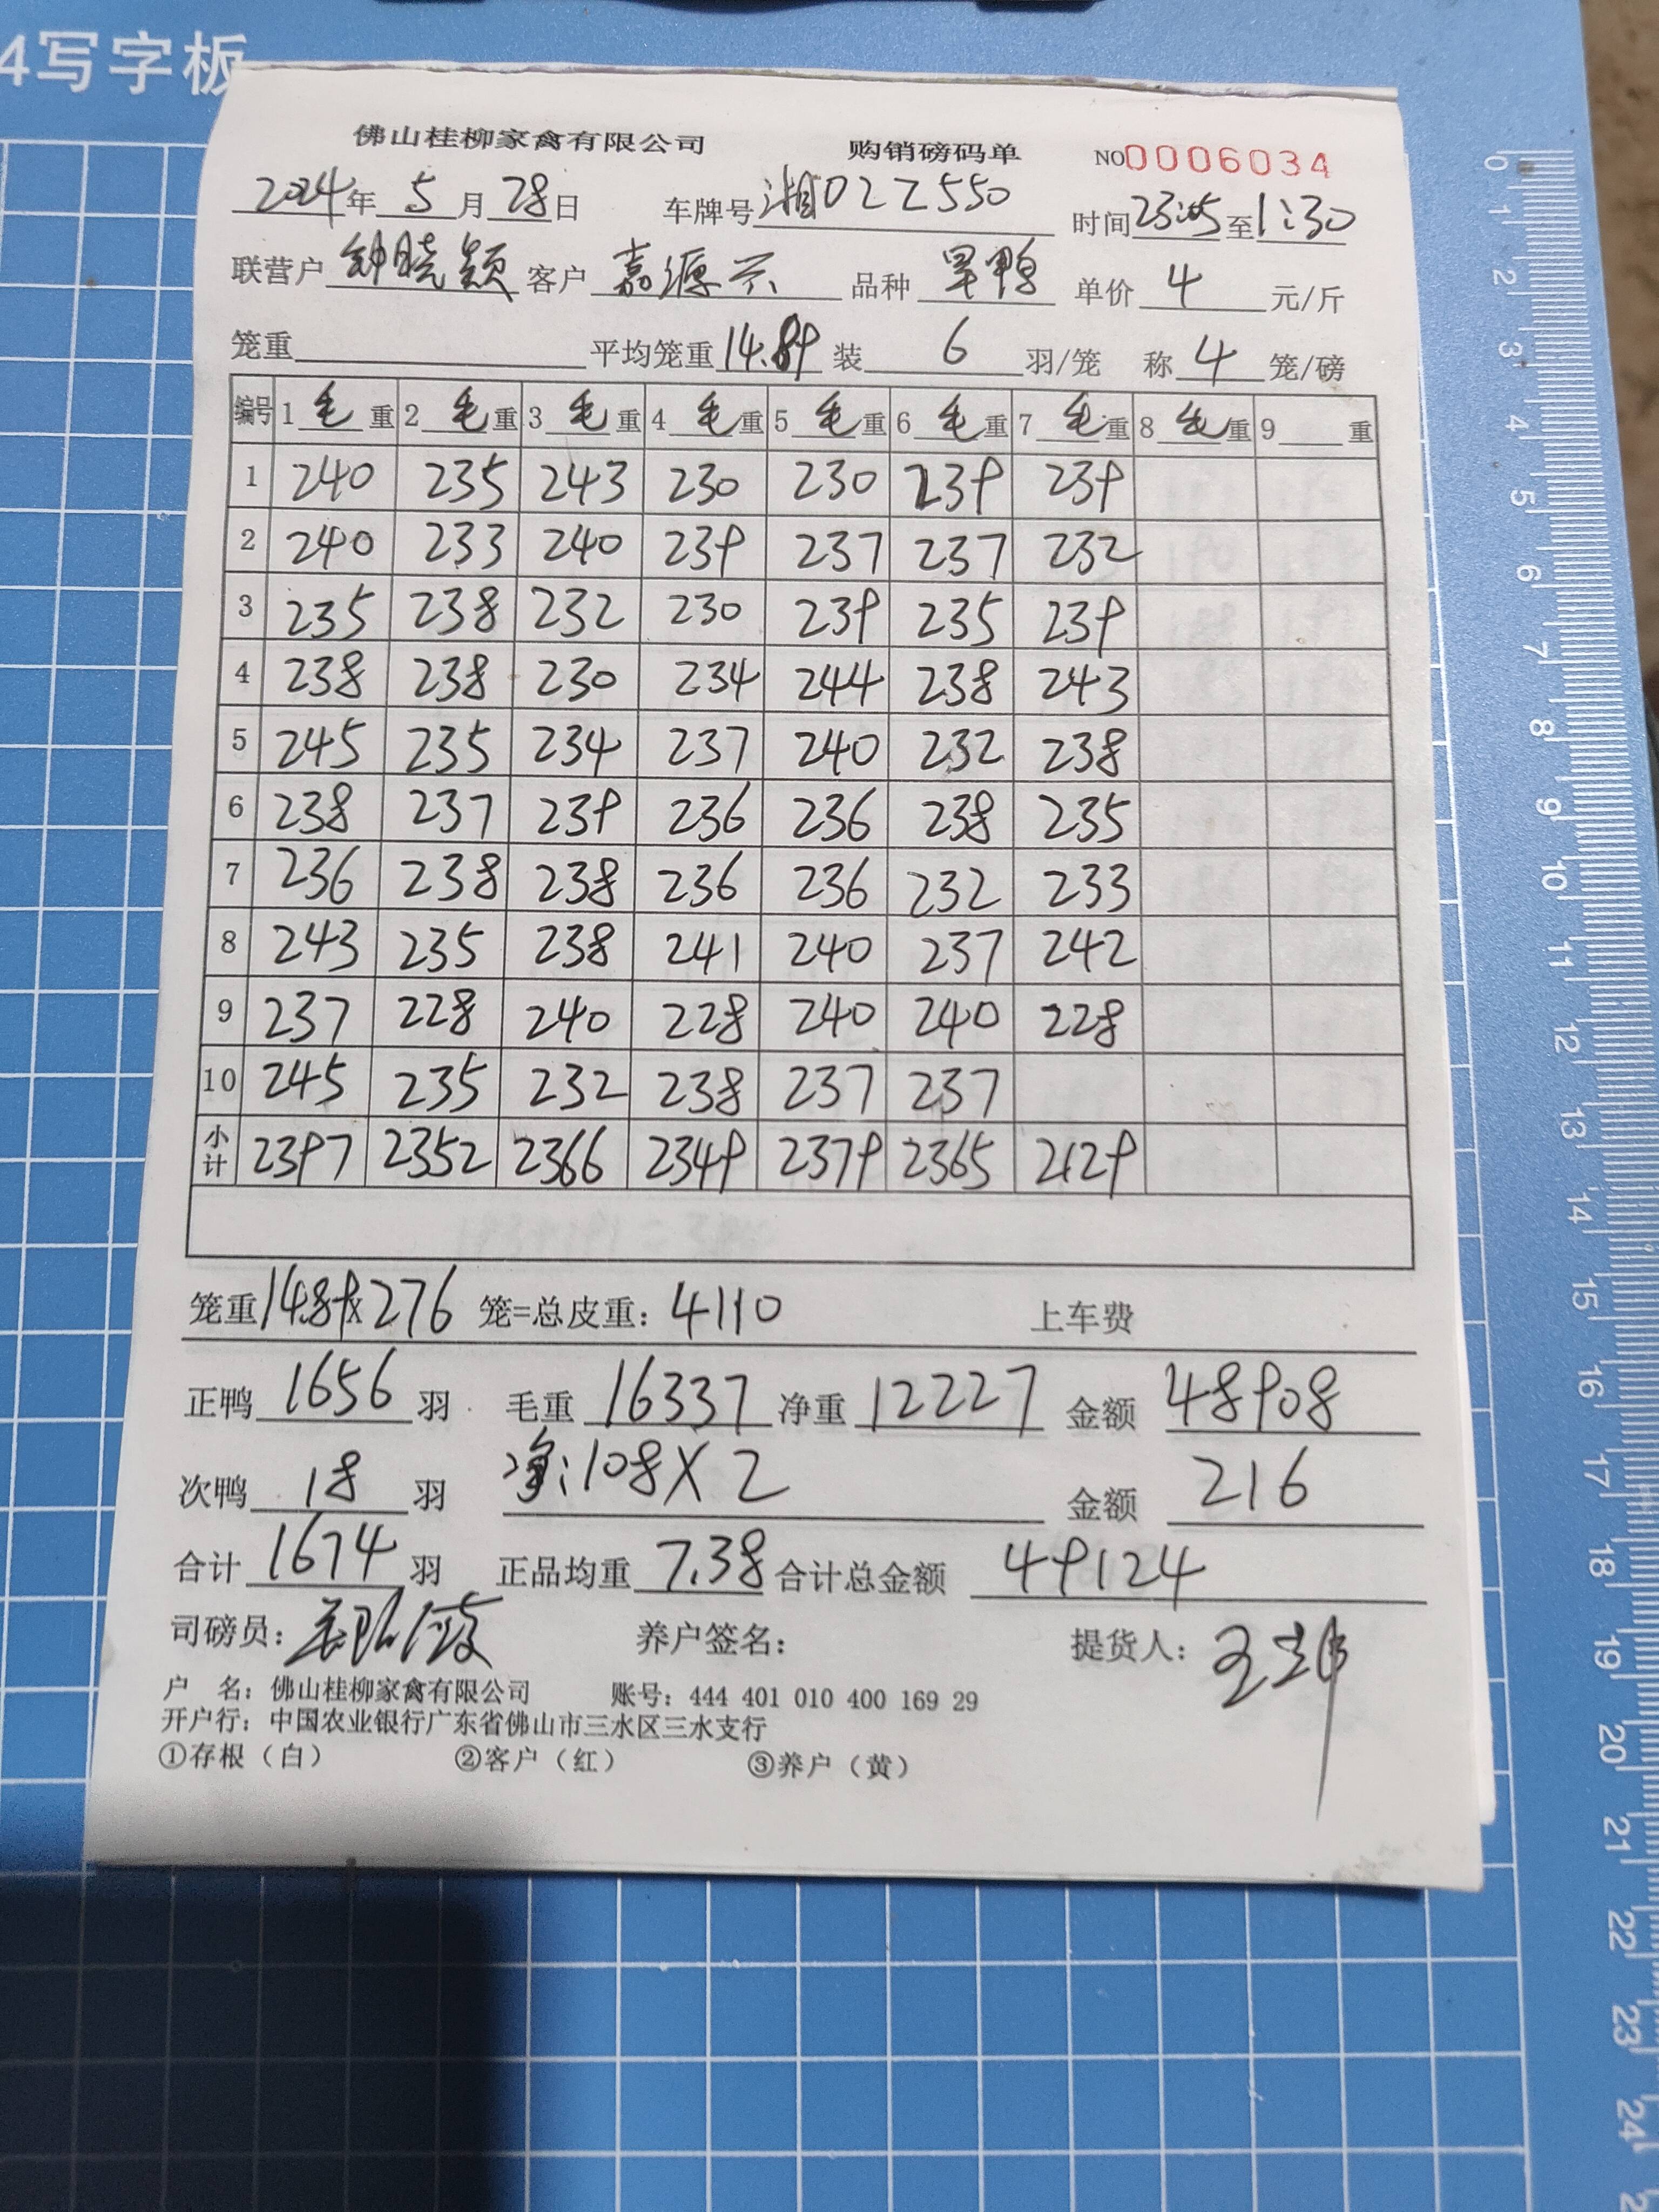 4写字板
佛山桂柳家禽有限公司 购销磅码单 NO0006034
2024年 5月 28日 车牌号 湘022550 时间 23:05 至 1:30
联营户 钟晓颖 客户 嘉源兴 品种 旱鸭 单价 4 元/斤
笼重 平均笼重 14.89 装 6 羽/笼 称 4 笼/磅
编号 1毛重 2毛重 3毛重 4毛重 5毛重 6毛重 7毛重 8毛重 9重
1 240 235 243 230 230 239 239
2 240 233 240 239 237 237 232
3 235 238 232 230 239 235 239
4 238 238 230 234 244 238 243
5 245 235 234 237 240 232 238
6 238 237 239 236 236 238 235
7 236 238 238 236 236 232 233
8 243 235 238 241 240 237 242
9 237 228 240 228 240 240 228
10 245 235 232 238 237 237
小计 2397 2352 2366 2349 2379 2365 2129
笼重14.89x276 笼=总皮重：4110 上车费
正鸭 1656 羽 毛重 16337 净重 12227 金额 48908
次鸭 18 羽 净:108X2 金额 216
合计 1674 羽 正品均重 7.38 合计总金额 49124
司磅员： 养户签名： 提货人：
户 名：佛山桂柳家禽有限公司 账号：444 401 010 400 169 29
开户行：中国农业银行广东省佛山市三水区三水支行
①存根（白） ②客户（红） ③养户（黄）
0 1 2 3 4 5 6 7 8 9 10 11 12 13 14 15 16 17 18 19 20 21 22 23 24